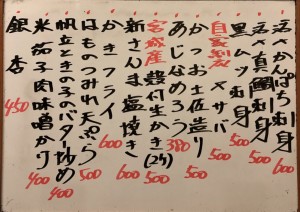 活〆かんぱち刺身 600
活〆真鯛刺身 500
黒ムツ刺身 500
自家製 〆サバ 500
かつお土佐造り 500
あじなめろう 380
宮城産 殻付生かき(2ケ) 500
新さんま塩焼き 600
かきフライ 600
はものつみれ天ぷら 500
帆立ときの子のバター炒め 400
米茄子肉味噌かけ 400
銀杏 450